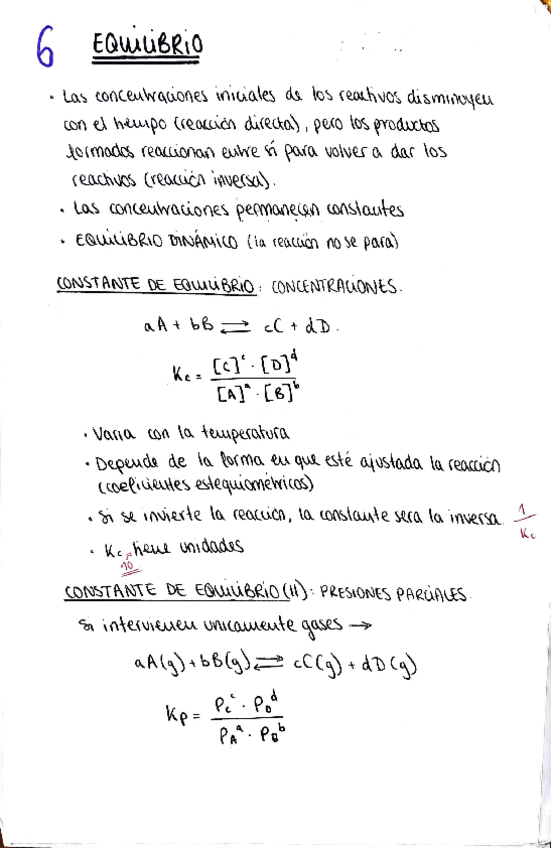 6 EQUILIBRIO
· Las concentraciones iniciales de los reactivos disminuyen
con el tiempo (reacción directa), pero los productos
formados reaccionan entre sí para volver a dar los
reactivos (reacción inversa).
· Las concentraciones permanecen constantes
· EQUILIBRIO DINÁMICO (la reacción no se para)
CONSTANTE DE EQUILIBRIO: CONCENTRACIONES.
aA + bB ⇌ cC + dD.
Kc = [C]ᶜ · [D]ᵈ / [A]ᵃ · [B]ᵇ
· Varia con la temperatura
· Depende de la forma en que esté ajustada la reacción
(coeficientes estequiométricos)
· Si se invierte la reacción, la constante sera la inversa. 1/Kc
· Kc, no tiene unidades
CONSTANTE DE EQUILIBRIO (II): PRESIONES PARCIALES
Si intervienen unicamente gases →
aA(g) + bB(g) ⇌ cC(g) + dD(g)
Kp = Pcᶜ · PDᵈ / PAᵃ · PBᵇ